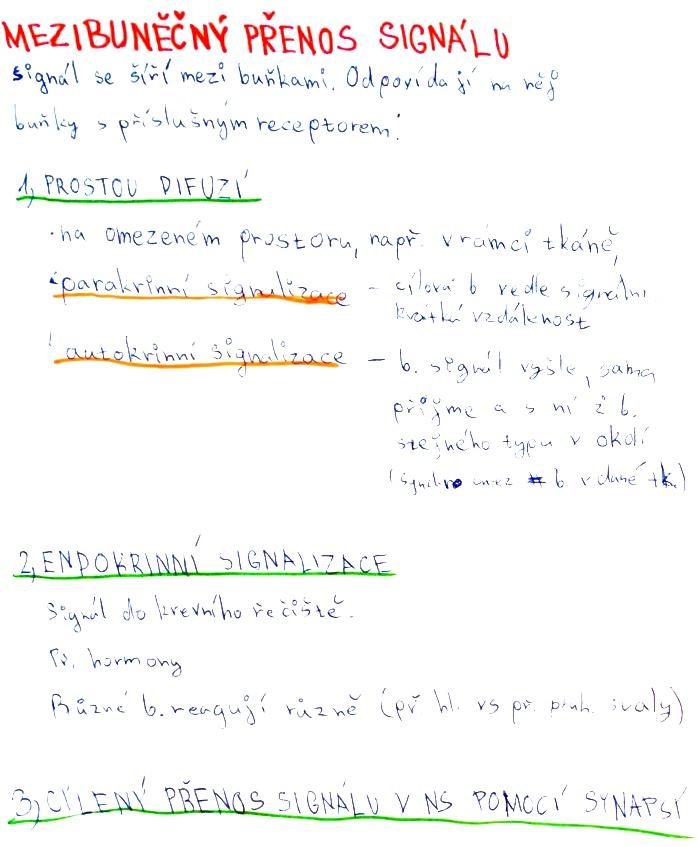 MEZIBUNĚČNÝ PŘENOS SIGNÁLU
signál se šíří mezi buňkami. Odpovídají na něj
buňky s příslušným receptorem.
1, PROSTOU DIFUZÍ
·na omezeném prostoru, např. v rámci tkáně,
parakrinní signalizace - cílová b vedle signální
krátká vzdálenost
autokrinní signalizace - b. signál vyšle, sama
přijme a s ní i b.
stejného typu v okolí
b v dané tk.)
2, ENDOKRINNÍ SIGNALIZACE
signál do krevního řečiště.
Př. hormony
Různé b. reagují různě (př hl. vs př. pruh. svaly)
3, CÍLENÝ PŘENOS SIGNÁLU V NS POMOCÍ SYNAPSÍ